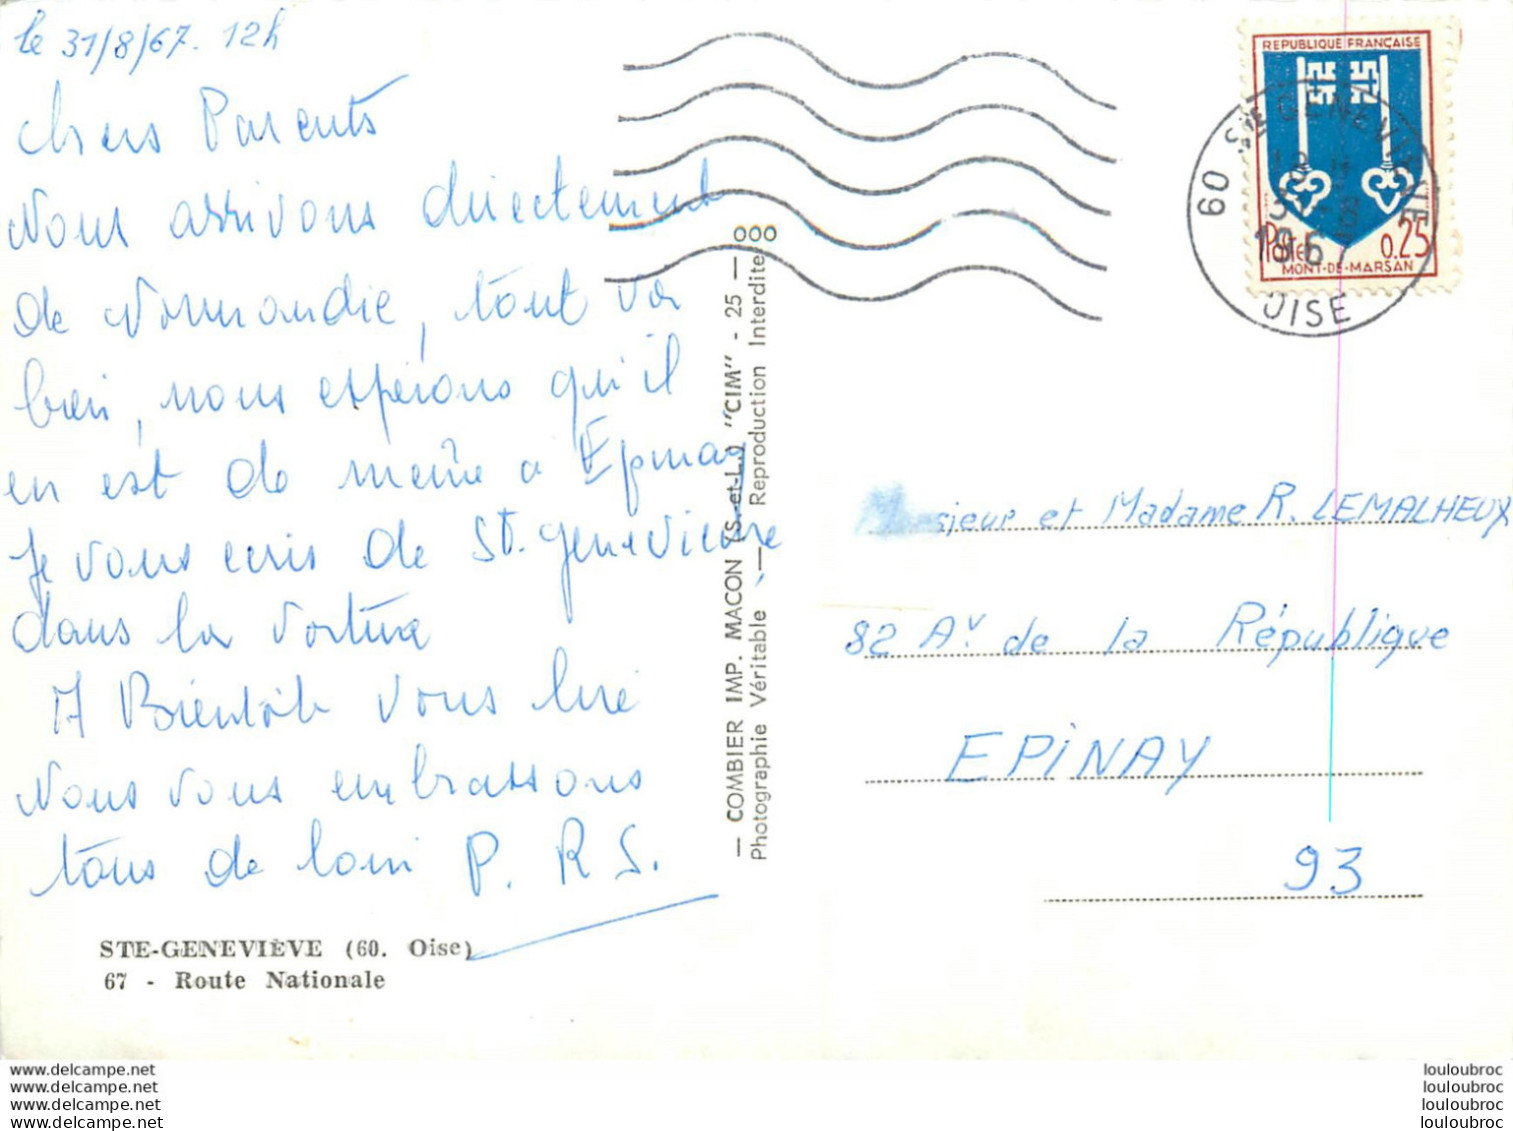 le 31/8/67. 12h
Chers Parents
Nous arrivons directement
de Normandie, tout va
bien, nous espérons qu'il
en est de même a Epinay
Je vous ecris de St. Geneviève
dans la voiture
A Bientôt vous lire
Nous vous embrassons
tous de loin P. R S.
STE-GENEVIÈVE (60. Oise)
67 - Route Nationale
— COMBIER IMP. MACON (S.-et-L.) "CIM" - 25 — 000
Photographie Véritable — Reproduction Interdite
REPUBLIQUE FRANÇAISE
Postes 0.25
MONT-DE-MARSAN
60 STE GENEVIEVE
OISE
Monsieur et Madame R. LEMALHEUX
82 Av de la République
EPINAY
93
www.delcampe.net
www.delcampe.net
www.delcampe.net
www.delcampe.net
louloubroc
louloubroc
louloubroc
louloubroc